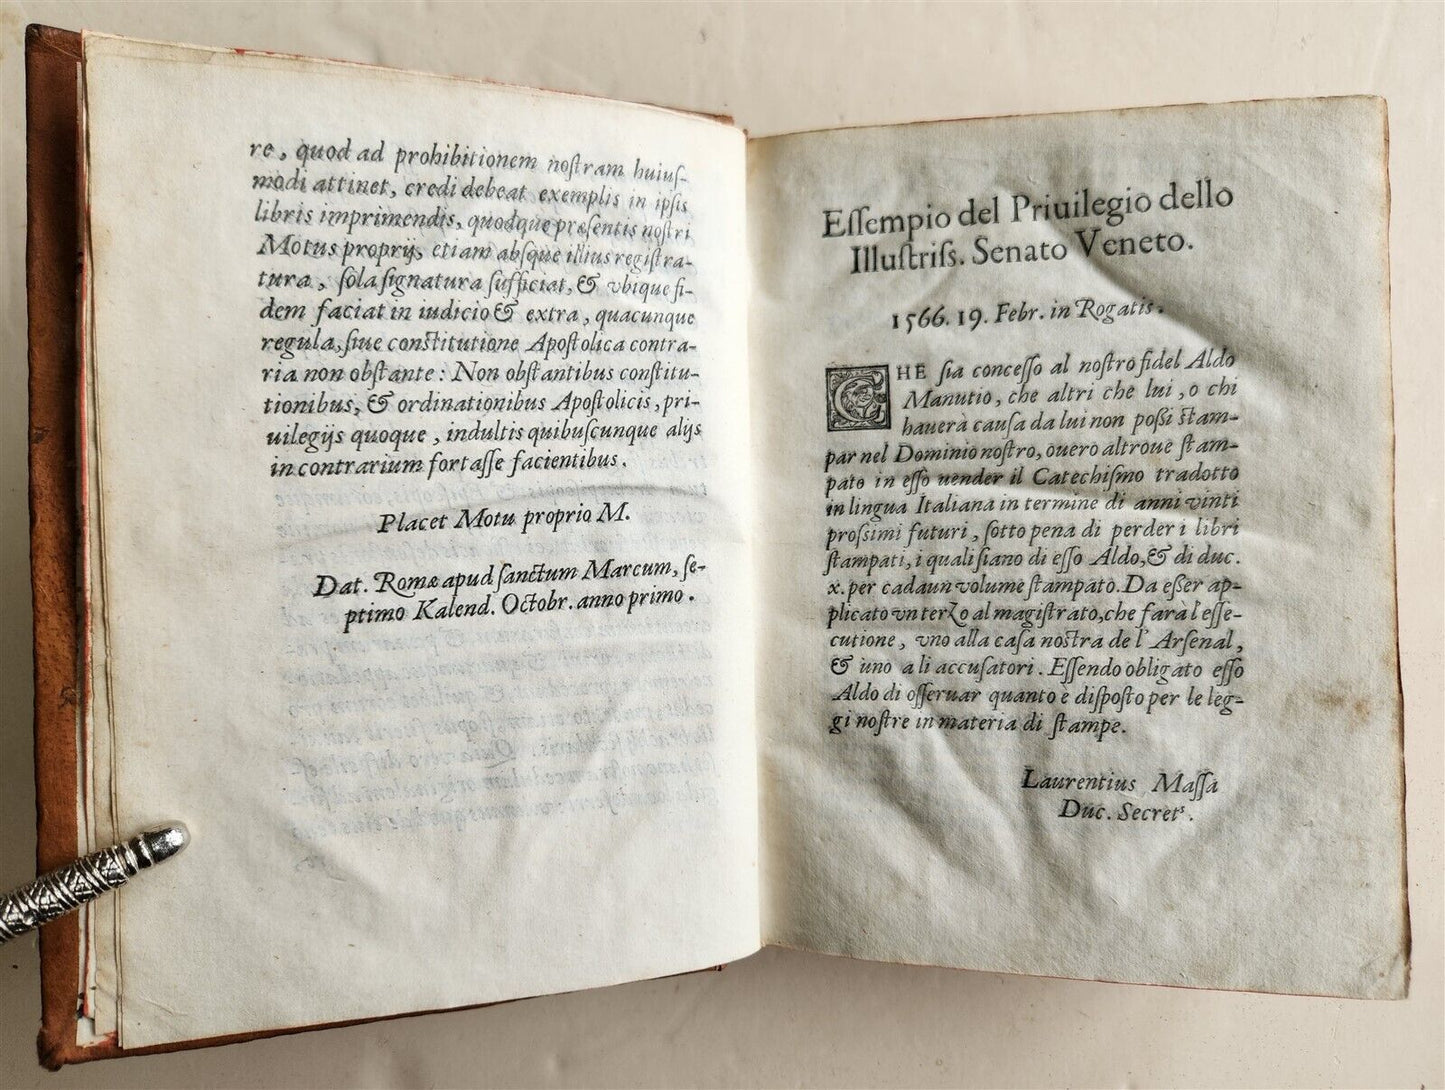 re, quod ad prohibitionem noſtram huiuſ-
modi attinet, credi debeat exemplis in ipſis
libris imprimendis, quodque præſentis noſtri
Motus proprij, etiam abſque illius regiſtra-
tura, ſola ſignatura ſufficiat, & vbique fi-
dem faciat in iudicio & extra, quacunque
regula, ſiue conſtitutione Apoſtolica contra-
ria non obſtante: Non obſtantibus conſtitu-
tionibus, & ordinationibus Apoſtolicis, pri-
uilegijs quoque, indultis quibuſcunque alijs
in contrarium fortaſſe facientibus.
Placet Motu proprio M.
Dat. Romæ apud ſanctum Marcum, ſe-
ptimo Kalend. Octobr. anno primo.
Eſſempio del Priuilegio dello
Illuſtriſs. Senato Veneto.
1566. 19. Febr. in Rogatis.
CHE ſia conceſſo al noſtro fidel Aldo
Manutio, che altri che lui, o chi
hauerà cauſa da lui non poſſi ſtam-
par nel Dominio noſtro, ouero altroue ſtam-
pato in eſſo uender il Catechiſmo tradotto
in lingua Italiana in termine di anni vinti
proſſimi futuri, ſotto pena di perder i libri
ſtampati, i quali ſiano di eſſo Aldo, & di duc.
x. per cadaun volume ſtampato. Da eſſer ap-
plicato vn terzo al magiſtrato, che farà l'eſſe-
cutione, vno alla caſa noſtra de l' Arſenal,
& uno a li accuſatori. Eſſendo obligato eſſo
Aldo di oſſeruar quanto è diſpoſto per le leg-
gi noſtre in materia di ſtampe.
Laurentius Maſſa
Duc. Secretˢ.